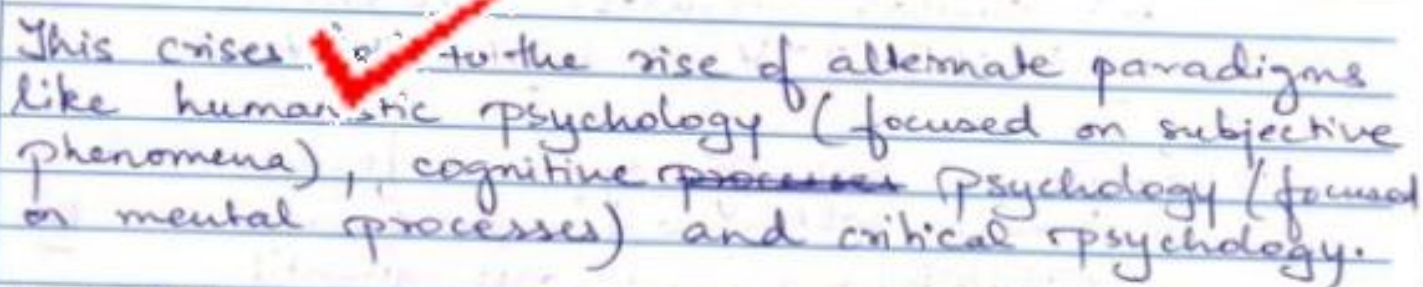 This crises to the rise of alternate paradigms
like humanistic psychology (focused on subjective
phenomena), cognitive processes psychology (focused
on mental processes) and critical psychology.